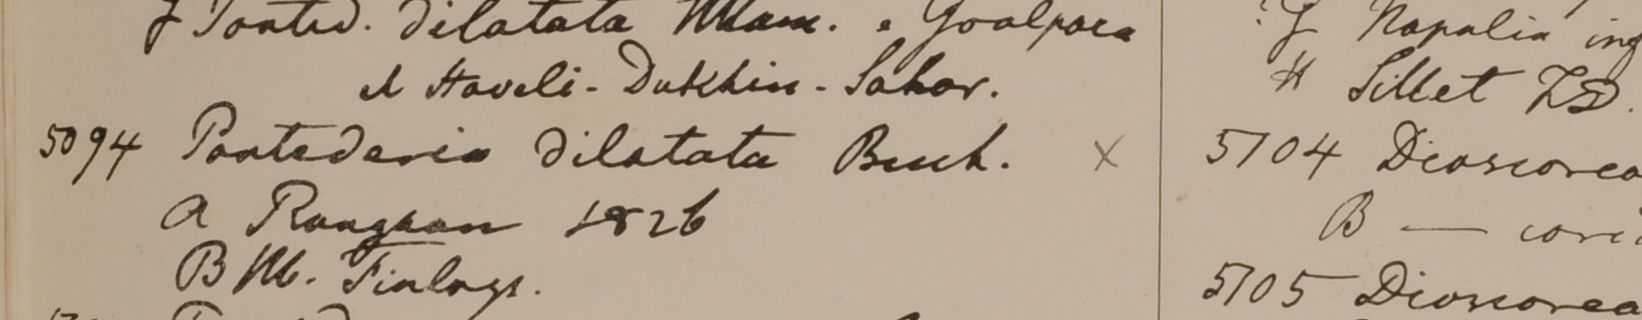 Ponted. dilatata Ham. Goalpara
d Haveli - Dukkhin - Sahor.
5094 Pontederia dilatata Buch. x
A Rangoon 1826
B Hb. Finlays.
Napalia
H Sillet
5104 Dioscorea
B —
5105 Dioscorea